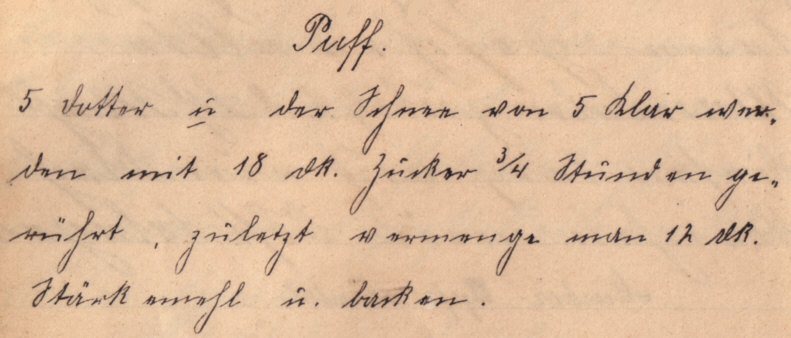 Puff.
5 Dotter u der Schnee von 5 Klar wer-
den mit 18 dk. Zucker 3/4 Stunden ge-
rührt, zuletzt vermenge man 12 dk.
Stärkemehl u. backen.